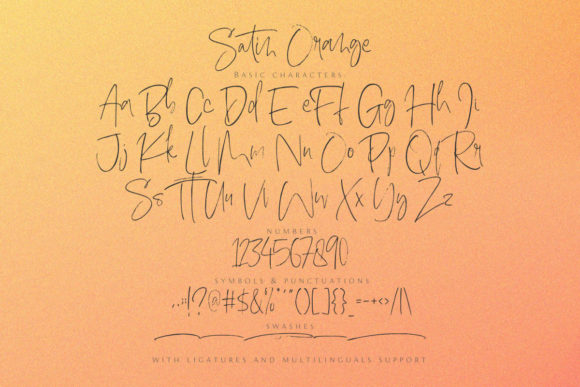 Satin Orange
BASIC CHARACTERS:
Aa Bb Cc Dd E e Ff Gg Hh Ii
Jj Kk Ll Mm Nn Oo Pp Qq Rr
Ss Tt Uu Vv Ww Xx Yy Zz
NUMBERS
1234567890
SYMBOLS & PUNCTUATIONS
.,:;!?@#$&%*'"()[]{}_=-+<>/|\
SWASHES
WITH LIGATURES AND MULTILINGUALS SUPPORT